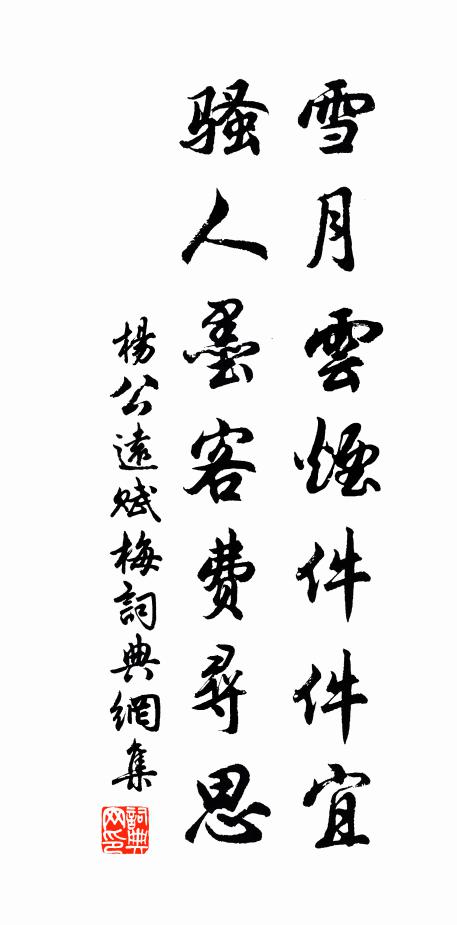 雪月雲煙件件宜
騷人墨客費尋思
楊公遠賦梅詞典網集
詞典網印